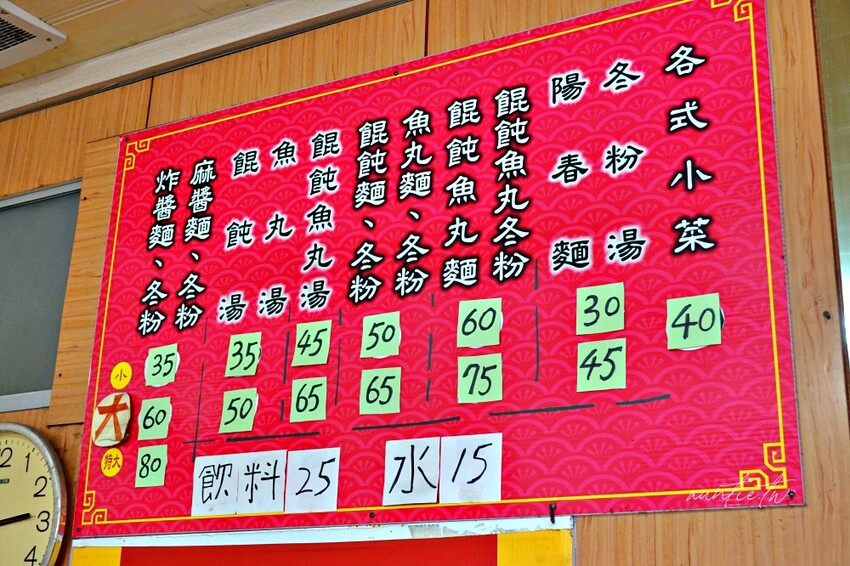 各式小菜
冬粉湯
陽春麵
餛飩魚丸冬粉
餛飩魚丸麵
魚丸麵、冬粉
餛飩麵、冬粉
餛飩魚丸湯
魚丸湯
餛飩湯
麻醬麵、冬粉
炸醬麵、冬粉
小 35 35 45 50 60 30 40
大 60 50 65 65 75 45
特大 80
飲料 25 水 15
auntie.th
12
1
2
3
4